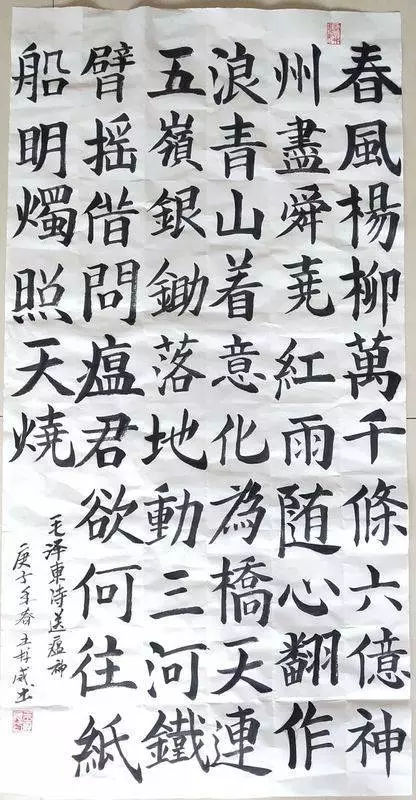 春風楊柳萬千條六億神
州盡舜尭紅雨随心翻作
浪青山着意化為橋天連
五嶺銀鋤落地動三河鐵
臂摇借問瘟君欲何往紙
船明燭照天燒
毛泽東诗送瘟神
庚子年春王书